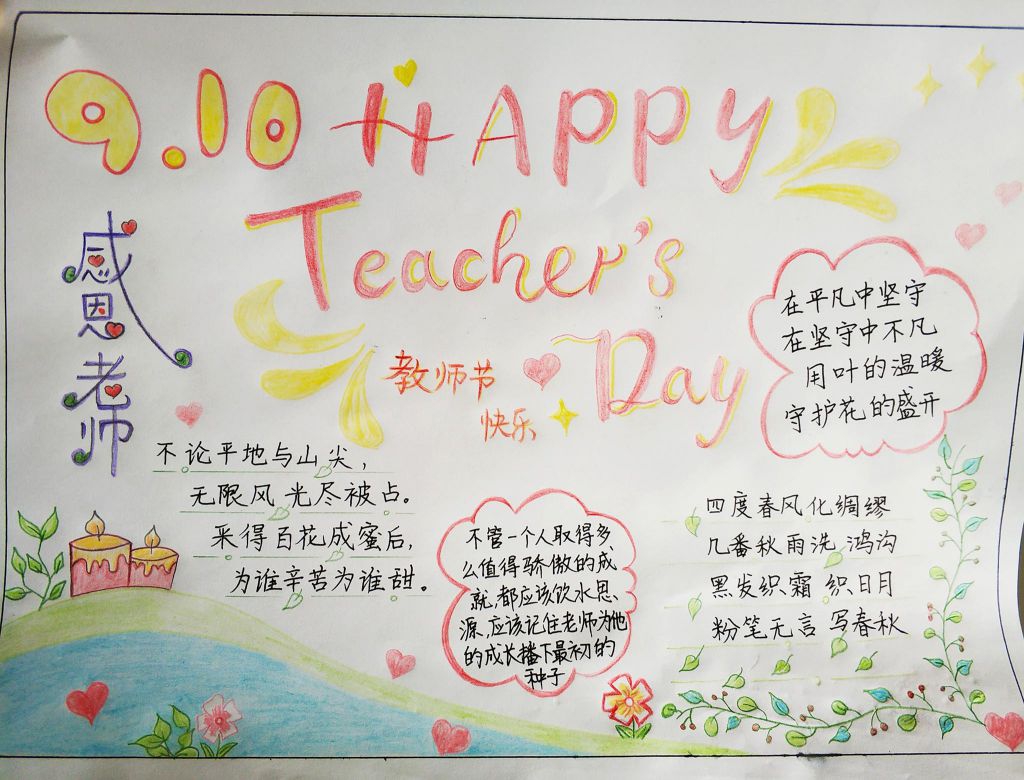 9.10 HAPPY
Teacher's
Day
感恩老师
教师节
快乐
在平凡中坚守
在坚守中不凡
用叶的温暖
守护花的盛开
不论平地与山尖，
无限风光尽被占。
采得百花成蜜后，
为谁辛苦为谁甜。
不管一个人取得多
么值得骄傲的成
就，都应该饮水思
源，应该记住老师为他
的成长播下最初的
种子
四度春风化绸缪
几番秋雨洗鸿沟
黑发织霜织日月
粉笔无言写春秋